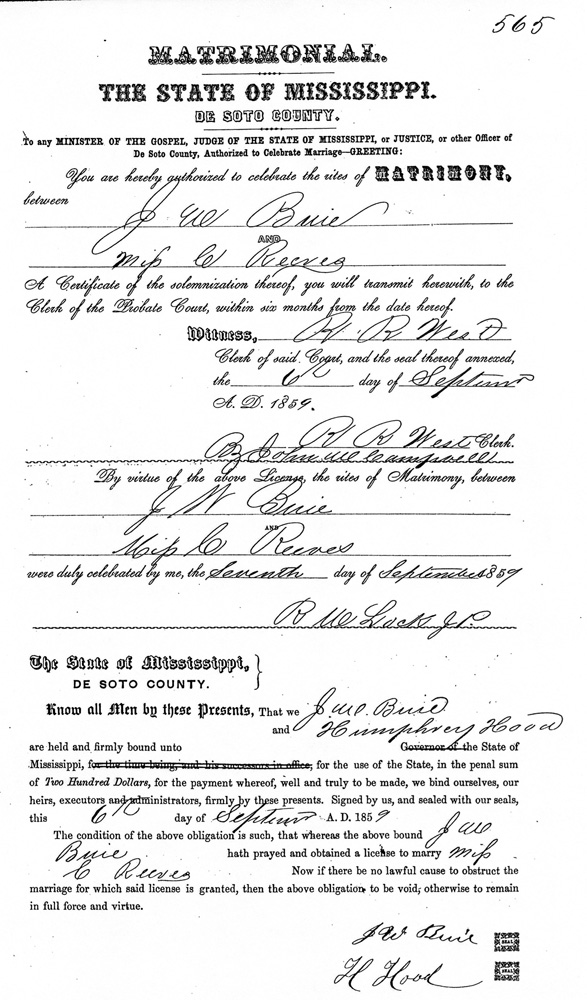 565
MATRIMONIAL.
THE STATE OF MISSISSIPPI.
DE SOTO COUNTY.
To any MINISTER OF THE GOSPEL, JUDGE OF THE STATE OF MISSISSIPPI, or JUSTICE, or other Officer of
De Soto County, Authorized to Celebrate Marriage—GREETING:
You are hereby authorized to celebrate the rites of MATRIMONY,
between
J W Buie
AND
Miss C Reeves
A Certificate of the solemnization thereof, you will transmit herewith, to the
Clerk of the Probate Court, within six months from the date hereof.
Witness, R R West
Clerk of said Court, and the seal thereof annexed,
the 6th day of Septem
A. D. 1859.
R R West Clerk.
By John W Campbell
By virtue of the above License, the rites of Matrimony, between
J W Buie
AND
Miss C Reeves
were duly celebrated by me, the Seventh day of September 1859
R W Lock J.P.
The State of Mississippi, }
DE SOTO COUNTY.
Know all Men by these Presents, That we J W. Buie
and Humphrey Hood
are held and firmly bound unto Governor of the State of
Mississippi, for the time being, and his successors in office, for the use of the State, in the penal sum
of Two Hundred Dollars, for the payment whereof, well and truly to be made, we bind ourselves, our
heirs, executors and administrators, firmly by these presents. Signed by us, and sealed with our seals,
this 6th day of Septem A. D. 1859
The condition of the above obligation is such, that whereas the above bound J W
Buie hath prayed and obtained a license to marry Miss
C Reeves Now if there be no lawful cause to obstruct the
marriage for which said license is granted, then the above obligation to be void; otherwise to remain
in full force and virtue.
J W Buie SEAL
H Hood SEAL